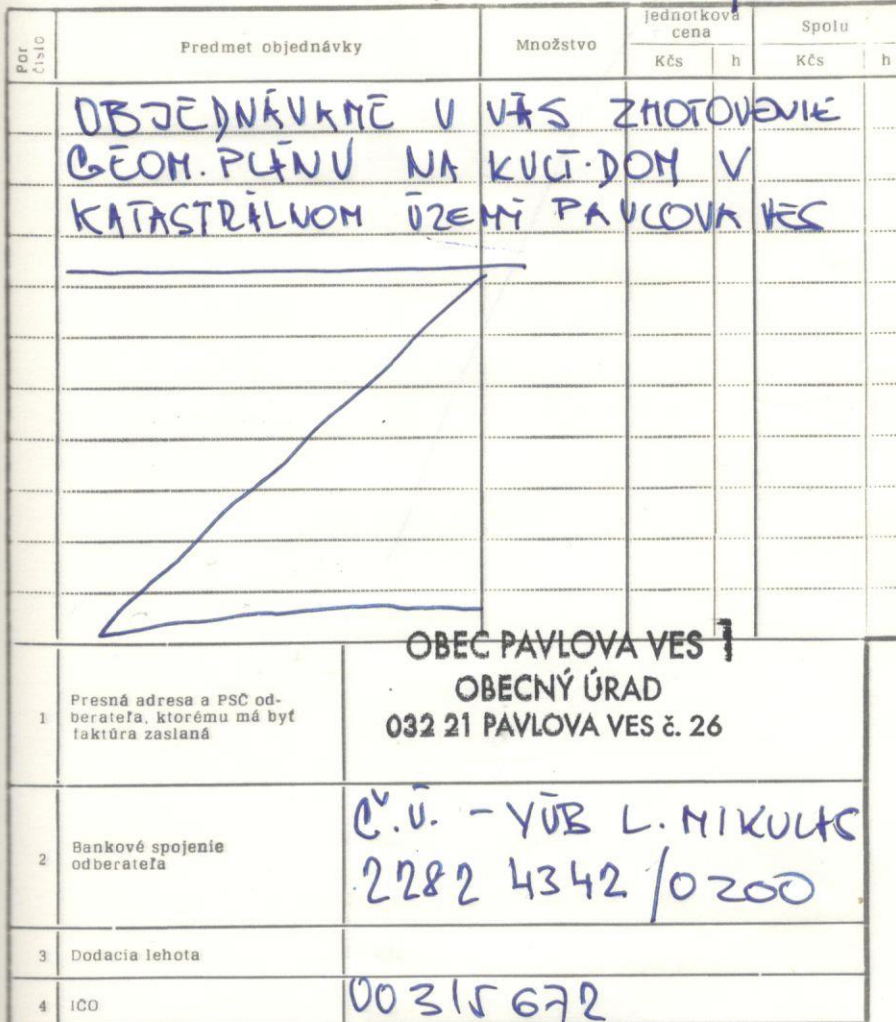 Por číslo
Predmet objednávky
Množstvo
jednotková cena
Spolu
Kčs
h
Kčs
h
OBJEDNÁVAME U VÁS ZHOTOVENIE
GEOM. PLÁNU NA KULT. DOM V
KATASTRÁLNOM ÚZEMÍ PAVLOVA VES
OBEC PAVLOVA VES 1
OBECNÝ ÚRAD
032 21 PAVLOVA VES č. 26
1
Presná adresa a PSČ od-
berateľa, ktorému má byť
faktúra zaslaná
2
Bankové spojenie
odberateľa
Č.Ú. - VÚB L. MIKULÁŠ
2282 4342 /0200
3
Dodacia lehota
4
IČO
00315672